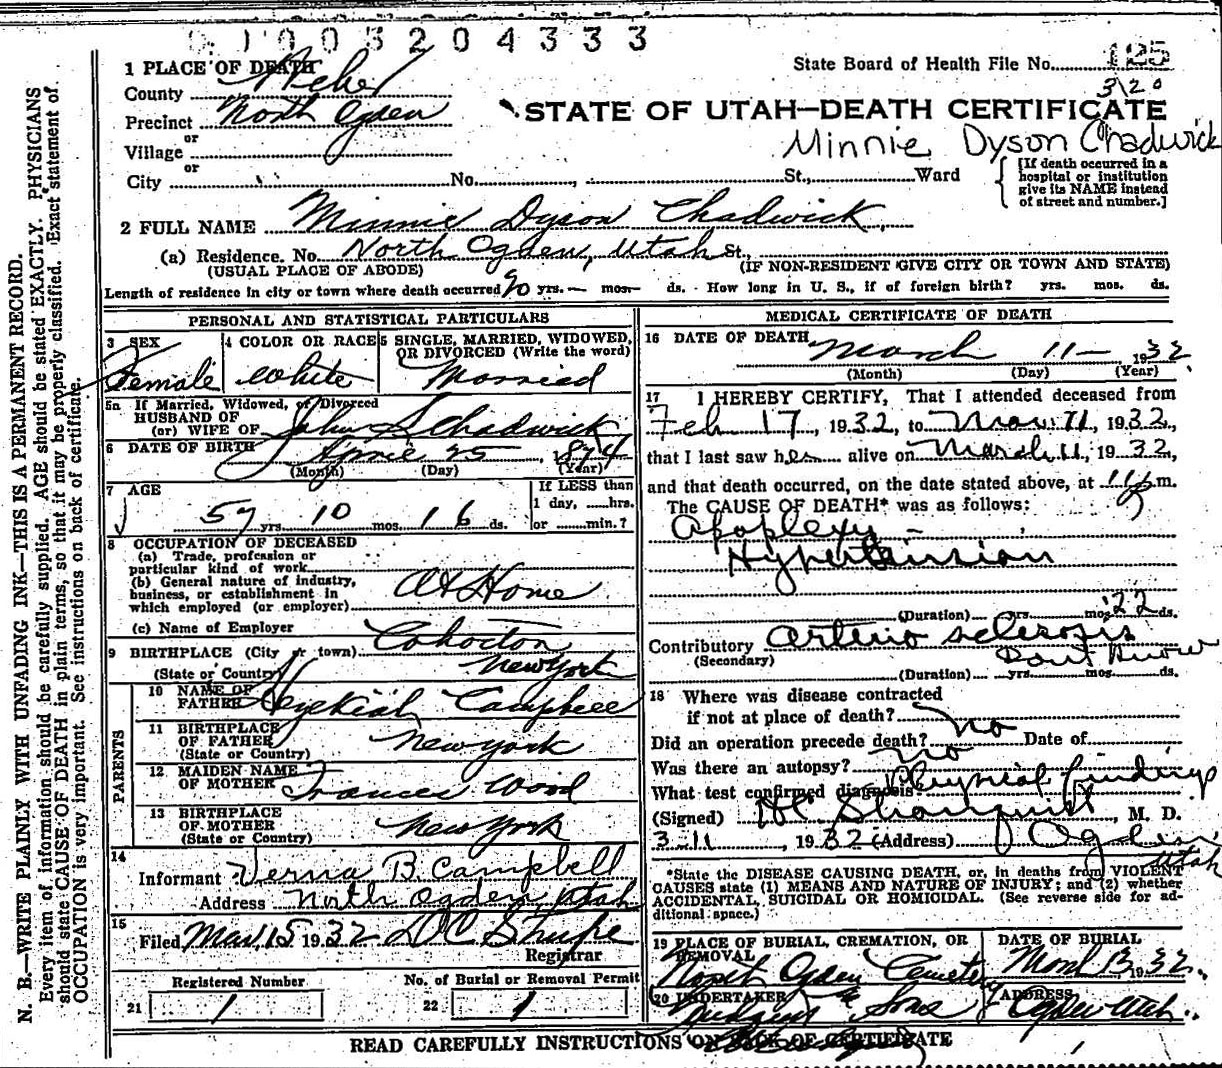 01003204333
1 PLACE OF DEATH
State Board of Health File No. 125
County Weber
3120
Precinct North Ogden
STATE OF UTAH—DEATH CERTIFICATE
or
Village
Minnie Dyson Chadwick
or
City No. St., Ward
[If death occurred in a
hospital or institution
give its NAME instead
of street and number.]
2 FULL NAME Minnie Dyson Chadwick
(a) Residence. No. North Ogden, Utah St.,
(USUAL PLACE OF ABODE) (IF NON-RESIDENT GIVE CITY OR TOWN AND STATE)
Length of residence in city or town where death occurred yrs. — mos. — ds. How long in U. S., if of foreign birth? yrs. mos. ds.
PERSONAL AND STATISTICAL PARTICULARS
3 SEX 4 COLOR OR RACE 5 SINGLE, MARRIED, WIDOWED,
OR DIVORCED (Write the word)
Female White Married
5a If Married, Widowed, or Divorced
HUSBAND OF
(or) WIFE OF John S Chadwick
6 DATE OF BIRTH April 25, 1874
(Month) (Day) (Year)
7 AGE If LESS than
1 day, hrs.
57 yrs. 10 mos. 16 ds. or min.?
8 OCCUPATION OF DECEASED
(a) Trade, profession or
particular kind of work
(b) General nature of industry,
business, or establishment in
which employed (or employer) At Home
(c) Name of Employer
9 BIRTHPLACE (City or town) Cohocton
(State or Country) New York
PARENTS
10 NAME OF
FATHER Hezekiah Campbell
11 BIRTHPLACE
OF FATHER New York
(State or Country)
12 MAIDEN NAME
OF MOTHER Frances Wood
13 BIRTHPLACE
OF MOTHER New York
(State or Country)
14
Informant Verna B Campbell
Address North Ogden, Utah
15
Filed Mar 15 1932 D C Shupe
Registrar
Registered Number No. of Burial or Removal Permit
21 1 22 1
MEDICAL CERTIFICATE OF DEATH
16 DATE OF DEATH March 11— 1932
(Month) (Day) (Year)
17 I HEREBY CERTIFY, That I attended deceased from
Feb 17, 1932, to Mar 11, 1932,
that I last saw her alive on March 11, 1932,
and that death occurred, on the date stated above, at m.
The CAUSE OF DEATH* was as follows:
Apoplexy
Hypertension
(Duration) yrs. mos. 22 ds.
Contributory Arterio sclerosis
(Secondary) Dont Know
(Duration) yrs. mos. ds.
18 Where was disease contracted
if not at place of death?
Did an operation precede death? No Date of
Was there an autopsy? No
What test confirmed diagnosis? Physical findings
(Signed) H C Stranquist, M. D.
3-11, 1932 (Address) Ogden,
Utah
*State the DISEASE CAUSING DEATH, or, in deaths from VIOLENT
CAUSES state (1) MEANS AND NATURE OF INJURY; and (2) whether
ACCIDENTAL, SUICIDAL OR HOMICIDAL. (See reverse side for ad-
ditional space.)
19 PLACE OF BURIAL, CREMATION, OR
REMOVAL DATE OF BURIAL
North Ogden Cemetery March 13 1932
20 UNDERTAKER & Sons ADDRESS Ogden Utah
READ CAREFULLY INSTRUCTIONS ON BACK OF CERTIFICATE
N. B.—WRITE PLAINLY WITH UNFADING INK—THIS IS A PERMANENT RECORD.
Every item of information should be carefully supplied. AGE should be stated EXACTLY. PHYSICIANS
should state CAUSE OF DEATH in plain terms, so that it may be properly classified. Exact statement of
OCCUPATION is very important. See instructions on back of certificate.